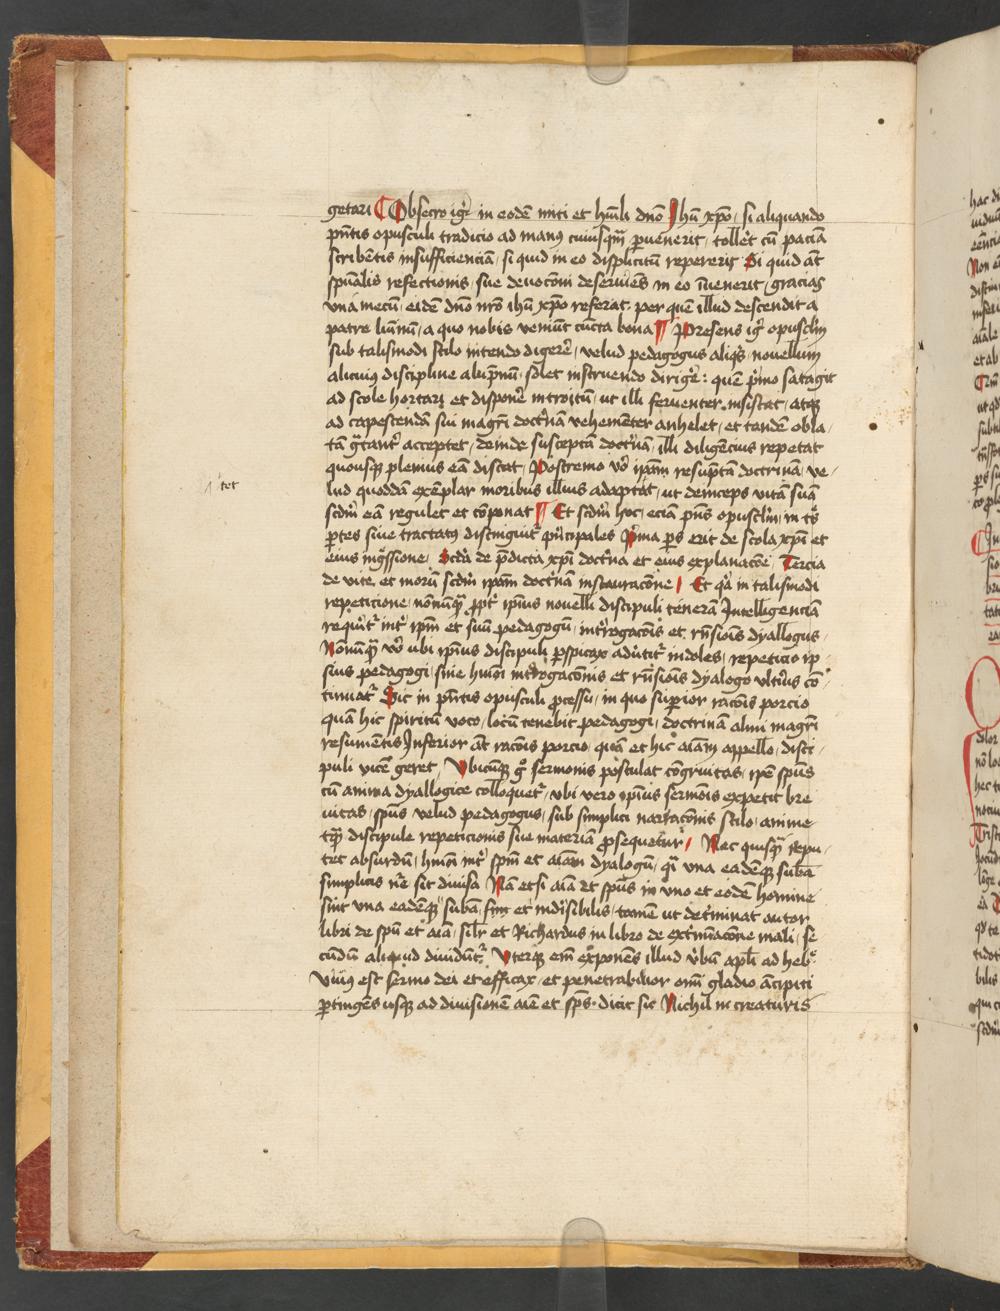 getari Obsecro igr̄ in eodē miti et hūili dn̄o Jhū xp̄o / si aliquando
pn̄tis opusculi tradicio ad manꝰ cuiusqm̄ ꝑuenerit / tollet cū paciā
scribētis insufficienciā / si quid in eo displicitū repererit Si quid āt
spūalis refectionis / siue deuocōni deseruiēs in eo īuenerit / gracias
vna mecū / eidē dn̄o nr̄o ihū xp̄o referat / per quē illud descendit a
patre lumīnū / a quo nobis veniūt cūcta bona Presens igr̄ opusclm̄
sub talismodi stilo intendo digerē / velud pedagogus aliqs̄ / nouellum
alicuiꝰ discipline alūpnū / solet instruendo dirigē : quē pⁱmo satagit
ad scole hortari et disponē introitū / ut illi feruenter insistat / atqꝫ
ad capescendā sui magrī doctⁱnā vehemēter anhelet / et tandē obla /
tā gͣtantr̄ acceptet / deinde susceptā doctⁱnā / illi diligēcius repetat
quousqꝫ plenius eā discat / Postremo vo᷑ ip̄am resūptā doctrinā / ve /
tet
lud quoddā exēplar moribus illius adaptāt / ut deinceps vitā suā
scdm̄ eā regulet et cōponat Et scdm̄ hoc / eciā pn̄s opusclm̄ / in tⁱs
ꝑtes siue tractatꝰ distīguitᷣ pⁱncipales Pⁱma ꝑs erit de scola xp̄i et
eius īgͣssione / Scdā de p̄dicta xp̄i doctⁱna et eius explanacōe / Tercia
de vite / et morū scdm̄ ip̄am doctⁱnam instauracōne / Et qꝛ in talismodi
repeticione / nōnūqͣ ꝓpt᷑ ip̄ius nouelli discipuli tenerā Intelligenciā
reqⁱritᷣ int᷑ ip̄m et suū pedagogū / int᷑rogacōis et rn̄sionis dyallogus /
Nonūqͣ vo᷑ ubi ip̄ius discipuli ꝑspicax adūtitᷣ indoles / repeticio ip /
sius pedagogi / sine hmōi int᷑rogacōnis et rn̄sionis dyalogo vltiꝰ cō /
tinuatᷣ Sic in pn̄tis opusculi ꝓcessu / in quo suꝑior racōis porcio
quā hic spiritū voco / locū tenebit pedagogi / doctrinam almi magrī
resumētis Inferior āt racōis porcio / quā et hic aīam appello / disci /
puli vicē geret / Vbicūqꝫ gͦ sermonis postulat cōgruitas / ip̄e spūs
cū anima dyallogice colloquetᷣ / vbi vero ip̄ius sermōis expetit bre
uitas / spūs velud pedagogus / sub simplici narracōnis stilo / anime
tqͣ discipule repeticionis sue materiā ꝓsequetur / Nec quisqͣ repu /
tet absurdū / hmōi int᷑ spm̄ et aīam dyalogū / qͣi vna eadēqꝫ suba
simplicis nr̄e sit diuisa Nā etsi aīa et spūs in vno et eodē homine
sint vna eadēqꝫ subā / simͬ et indiuisibilis / tamē ut det᷑minat autor
libri de spū et aīa / silr̄ et Richardus in libro de ext᷑minacōne mali / se
cūdū aliquid diuidūtᷣ Vterqꝫ em̄ exponēs illud v᷑bū apl̄i ad heb᷑
Viuꝰ est sermo dei et efficax / et penetrabilior om̄i gladio ancipiti
ꝑtingēs usqꝫ ad diuisionem aīe et sp̄s · dicit sic Nichil in creaturis